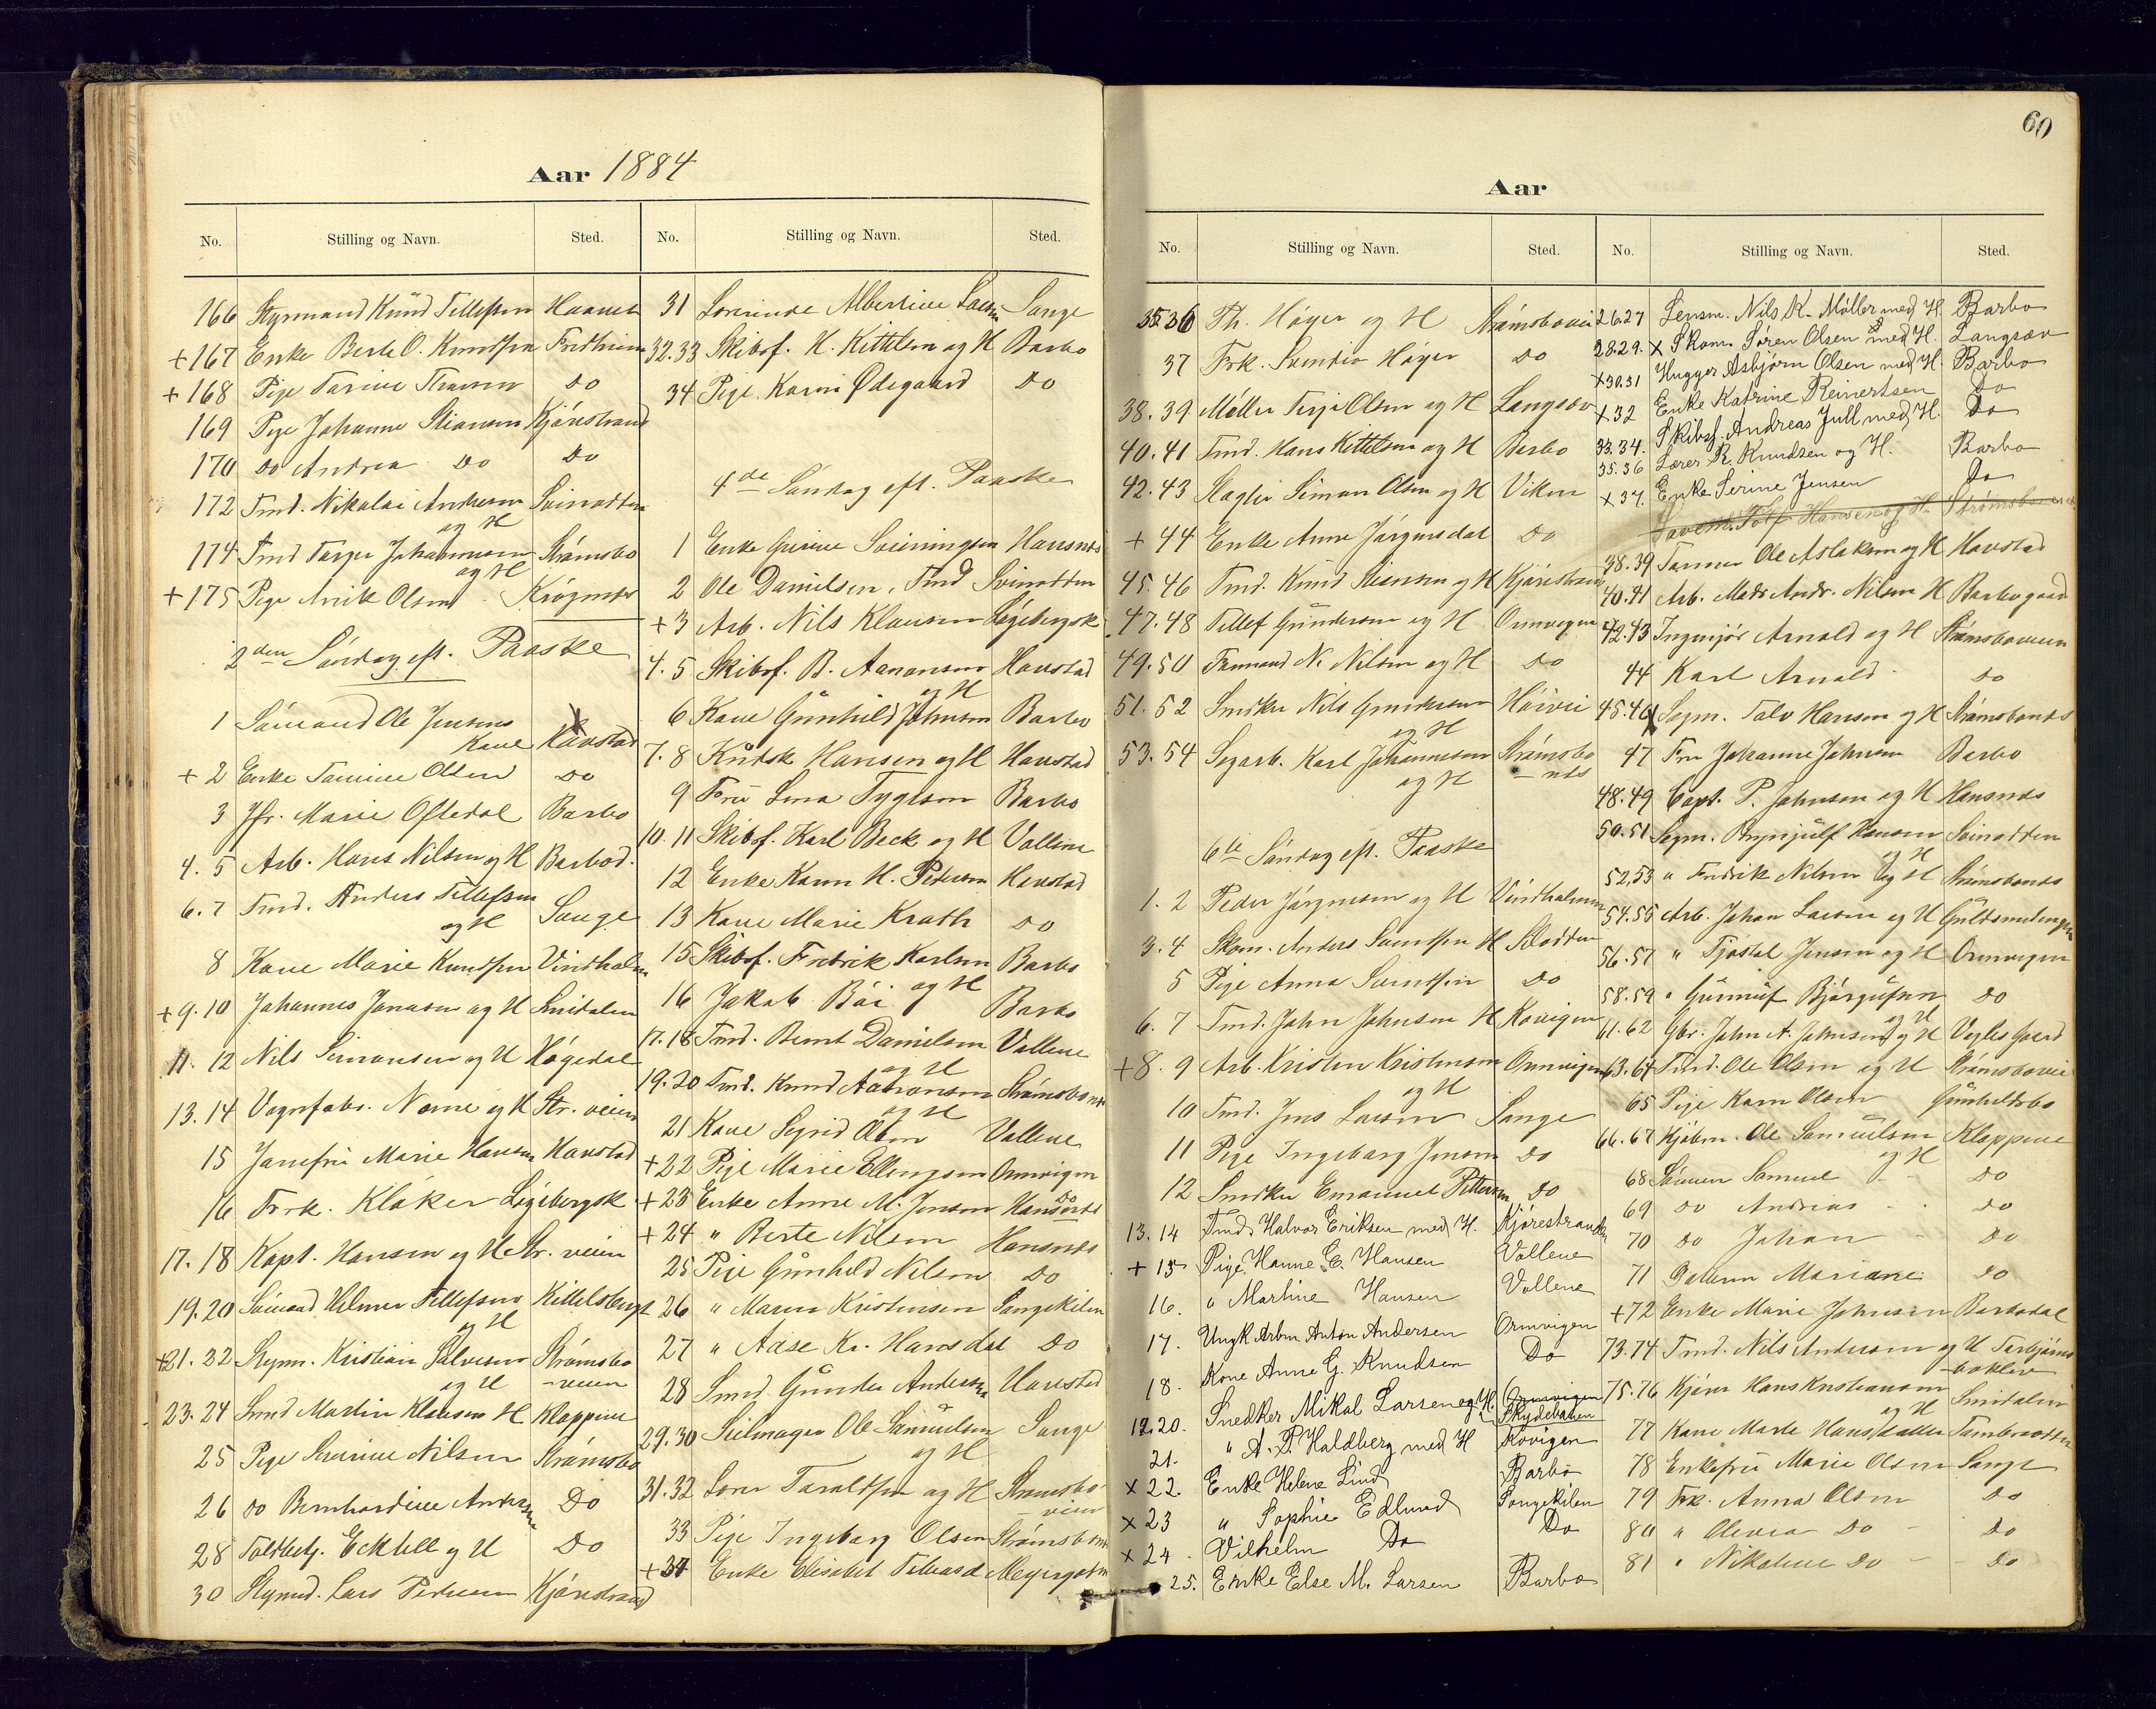 Aar 1884
No. Stilling og Navn. Sted.
166 Styrmand Knud Tellefsen
+ 167 Enke Berte O. Knudsen Fredheim
+ 168 Pige Tarine do
169 Pige Johanne Stiansen Kjørestrand
170 do Andrea do do
172 Tmd. Nikolai Andersen Svinodden
og H
174 Tmd Terje Johannesen Strømsbo
og H
+ 175 Pige Anik Olsen Krøgenes
2den Søndag eft. Paaske
1 Sømand Ole Jensens
Kone Havstad
+ 2 Enke Tomine Olsen do
3 Jfr. Marie Oftedal Barbo
4. 5 Arb. Hans Nilsen og H Barbod.
6. 7 Tmd. Anders Tellefsen
og H Songe
8 Kone Marie Knudsen Vindholm
+ 9. 10 Johannes Jonasen og H Smidalen
11. 12 Nils Simonsen og H Høgedal
13. 14 Vognfabr. Næme og H Str. veien
15 Jomfru Marie Hansen Havstad
16 Frk. Kløker Løgebergsk
17. 18 Kapt. Hansen og H Str. veien
19. 20 Sømand Helmer Tellefsen Kittelsbugt
og H
+ 21. 22 Styrm. Kristian Salvesen Strømsbo
og H -veien
23. 24 Smd Martin Klausen H Kloppene
25 Pige Severine Nilsen Strømsbo
26 do Bernhardine Andersen Do
28 Toldbetj. Ecktell og H Do
30 Styrmd. Lars Pedersen Kjørestrand
No. Stilling og Navn. Sted.
31 Lovinde Albertine Larsen Songe
32. 33 Skibsf. K. Kittilsen og H Barbo
34 Pige Karen Ødegaard do
4de Søndag eft. Paaske
1 Enke Gurine Sveinungsen Hansnes
2 Ole Danielsen, Tmd Svinodden
+ 3 Arb. Nils Klausen Løgebergsk
4. 5 Skibsf. B. Aanonsen Havstad
og H
6 Kone Gunhild Johnsen Barbo
7. 8 Hansen og H Havstad
9 Fru Lina Tygesen Barbo
10. 11 Skibsf. Karl Beck og H Vollene
12 Enke Karen H. Pedersen Havstad
13 Kone Marie Krath do
15 Skibsf. Fredrik Karlsen Barbo
og H
16 Jakob Bøe Barbo
17. 18 Tmd. Bernt Danielsen Vollene
og H
19. 20 Tmd. Knud Aanonsen Strømsbones
og H
21 Kone Sigrid Olsen Vollene
+ 22 Pige Marie Ellingsen Ormvigen
+ 23 Enke Anne M. Jensen do Hansnes
+ 24 " Berte Nilsen Hansnes
25 Pige Gunhild Nilsen do
26 " Maren Kristensen Songekilen
27 " Aase Kr. Hansdal do
28 Smed Gunder Andersen Havstad
29. 30 Seilmager Ole Samuelsen Songe
og H
31. 32 Lorens Taraldsen og H Strømsbo
veien
33 Pige Ingeborg Olsen Strømsbones
+ 34 Enke Elisabet
60
Aar
No. Stilling og Navn. Sted.
35. 36 Th. Høyer og H Strømsbovei
37 Frk. Høyer do
38. 39 Møller Terje Olsen og H Langsæv
40. 41 Tmd. Hans Kittelsen og H Barbo
42. 43 Slagter Simon Olsen og H Viken
+ 44 Enke Anne Jørgensdat do
45. 46 Tmd. Knud Stiansen og H Kjørestrand
47. 48 Tellef Gundersen og H Ormvigen
49. 50 Tømmand N. Nilsen og H do
51. 52 Snedker Nils Gundersen Høivei
og H
53. 54 Sagarb. Karl Johannesen Strømsbo
og H - nes
6te Søndag eft. Paaske
1. 2 Peder Jørgensen og H Vindholmen
3. 4 Skom. Anders Svendsen H Slodden
5 Pige Anna Svendsen do
6. 7 Tmd. John Johnsen H Kovigen
+ 8. 9 Arb. Kristen Kristensen Ormvigen
og H
10 Tmd. Jens Larsen Songe
11 Pige Ingeborg Jensen do
12 Snedker Emanuel Pettersen do
13. 14 Tmd. Halvor Eriksen med H. Kjørestranden
+ 15 Pige Hanne C. Hansen Vollene
16. " Martine Hansen Vollene
17. Ungk Arbm. Anton Andersen Ormvigen
18. Kone Anne G. Knudsen Do
19. 20. Snedker Mikal Larsen og H. Ormvigen Skydebanen
21. " A. P. Haldberg med H Kovigen
x 22. Enke Helene Lind Barbo
x 23 " Sophie Edlund Songekilen
x 24 Vilhelm Do Do
25. Enke Else M. Larsen Barbo
No. Stilling og Navn. Sted.
26 27 Lensm. Nils K. Møller med H. Barbo
28. 29. x Skom. Søren Olsen med H. Langsæv
x 30. 31 Hugger Asbjørn Olsen med H. Barbo
x 32 Enke Katrine Reinertsen Do
33. 34. Skibsf. Andreas Jull med H. Do
35. 36 Lærer R. Knudsen og H. Barbo
x 37. Enke Serine Jensen Do
Tolf Hansen og H. Strømsbones
38. 39 Tømmer Ole Aslaksen og H Havstad
40. 41 Arb. Mads Andr. Nilsen H Barbogaard
42. 43 Ingeniør Arnold og H Strømsboveien
44 Karl Arnold do
45. 46 Sagm. Talv Hansen og H Strømsbones
47 Fru Johanne Johnsen Barbo
48. 49 Capt. P. Johnsen og H Hansnes
50. 51 Sagm. Brynjulf Hansen Svinodden
og H
52, 53 " Fredrik Nilsen og H Strømsbones
54. 55 Arb. Johan Larsen og H Guldsmedengen
56. 57 " Tjøstel Jensen og H Ormvigen
58. 59 " Gunnuf Bjørgufsen do
og H
61. 62 Gbr. John A. Johnsen og H Vegles Gaard
63. 64 Tmd. Ole Olsen og H Strømsbovei
65 Pige Karn Olsen Gunhildsbo
66. 67 Kjøbm. Ole Samuelsen Kloppene
og H
68 Sønnen Samuel do
69 do Andreas do
70 do Johan - do
71 Datteren Mariane do
+ 72 Enke Marie Johnsen Barbodal
73. 74 Tmd. Nils Andersen og H Torbjørns
bakken
75. 76 Kjører Hans Kristiansen Smidalen
og H
77 Kone Marte Hansdatter
78 Enkefru Marie Olsen Songe
79 Frk. Anna Olsen do
80 " Olevia do - do
81 " Nikoline do - do